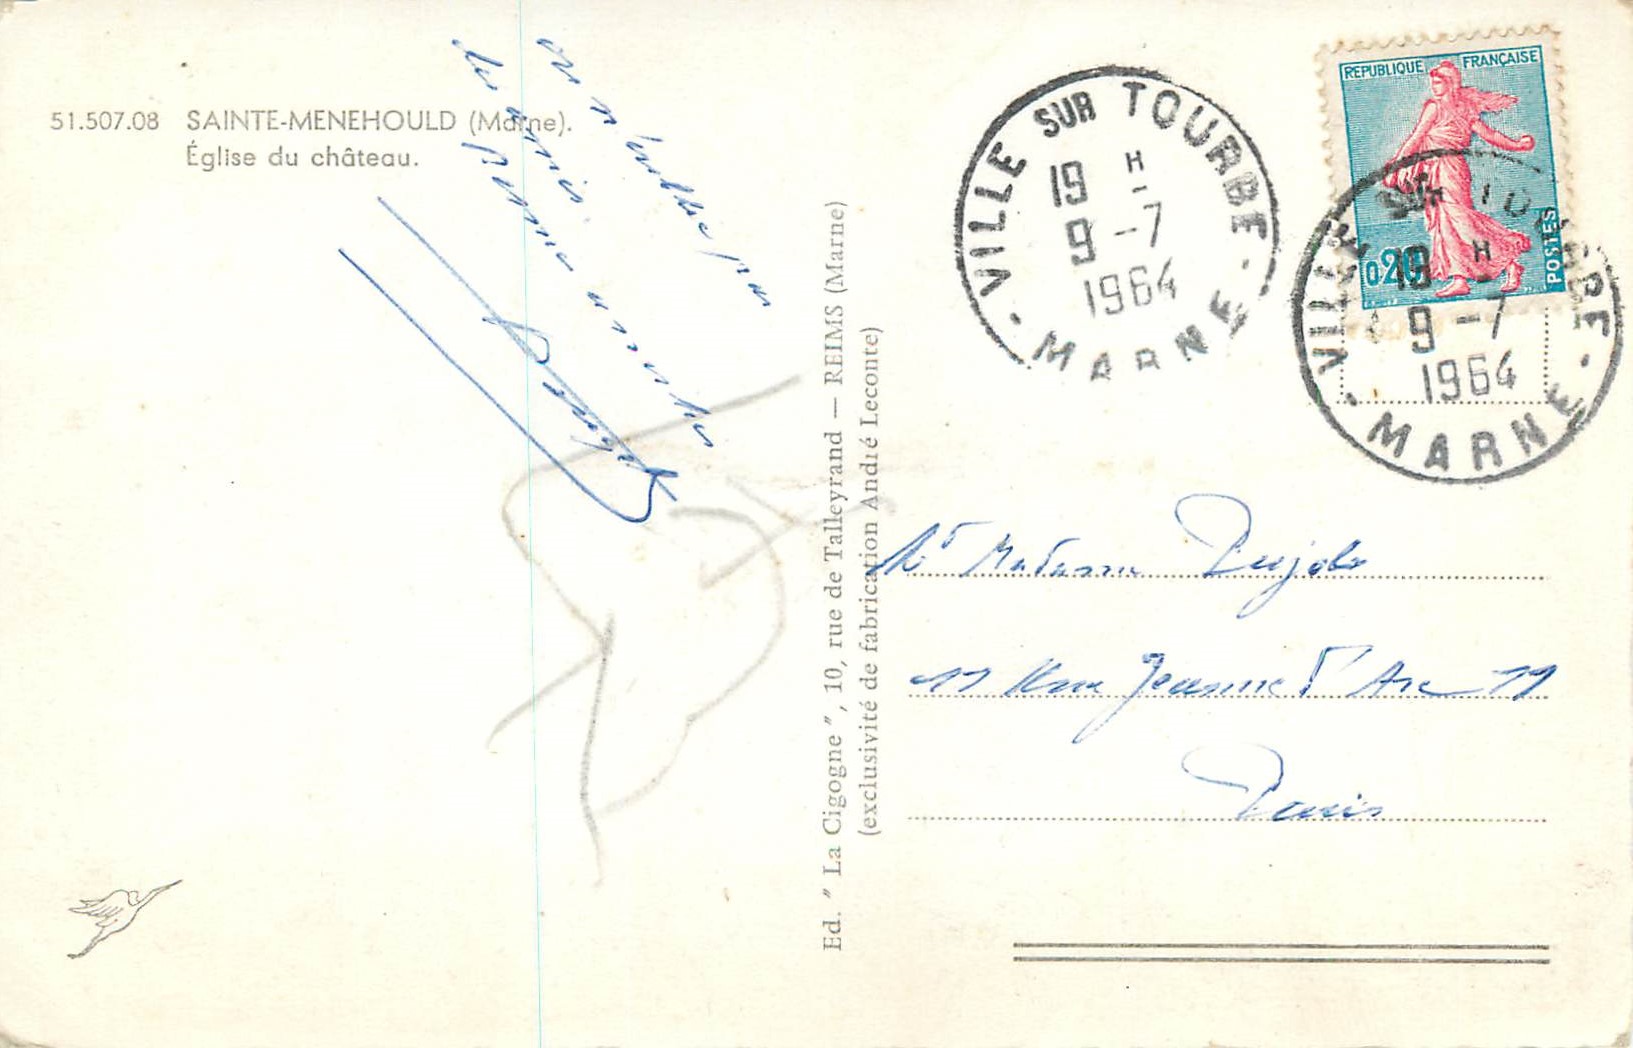 51.507.08 SAINTE-MENEHOULD (Marne).
Église du château.
on n'oublie pas
les amis.
Bonne
Ed. "La Cigogne", 10, rue de Talleyrand — REIMS (Marne)
(exclusivité de fabrication André Leconte)
VILLE SUR TOURBE
19 H
9 -7
1964
- MARNE -
REPUBLIQUE FRANÇAISE
0,20
POSTES
VILLE SUR TOURBE
19 H
9 -7
1964
- MARNE -
Madame Pujols
11 Rue Jeanne d'Arc
Paris